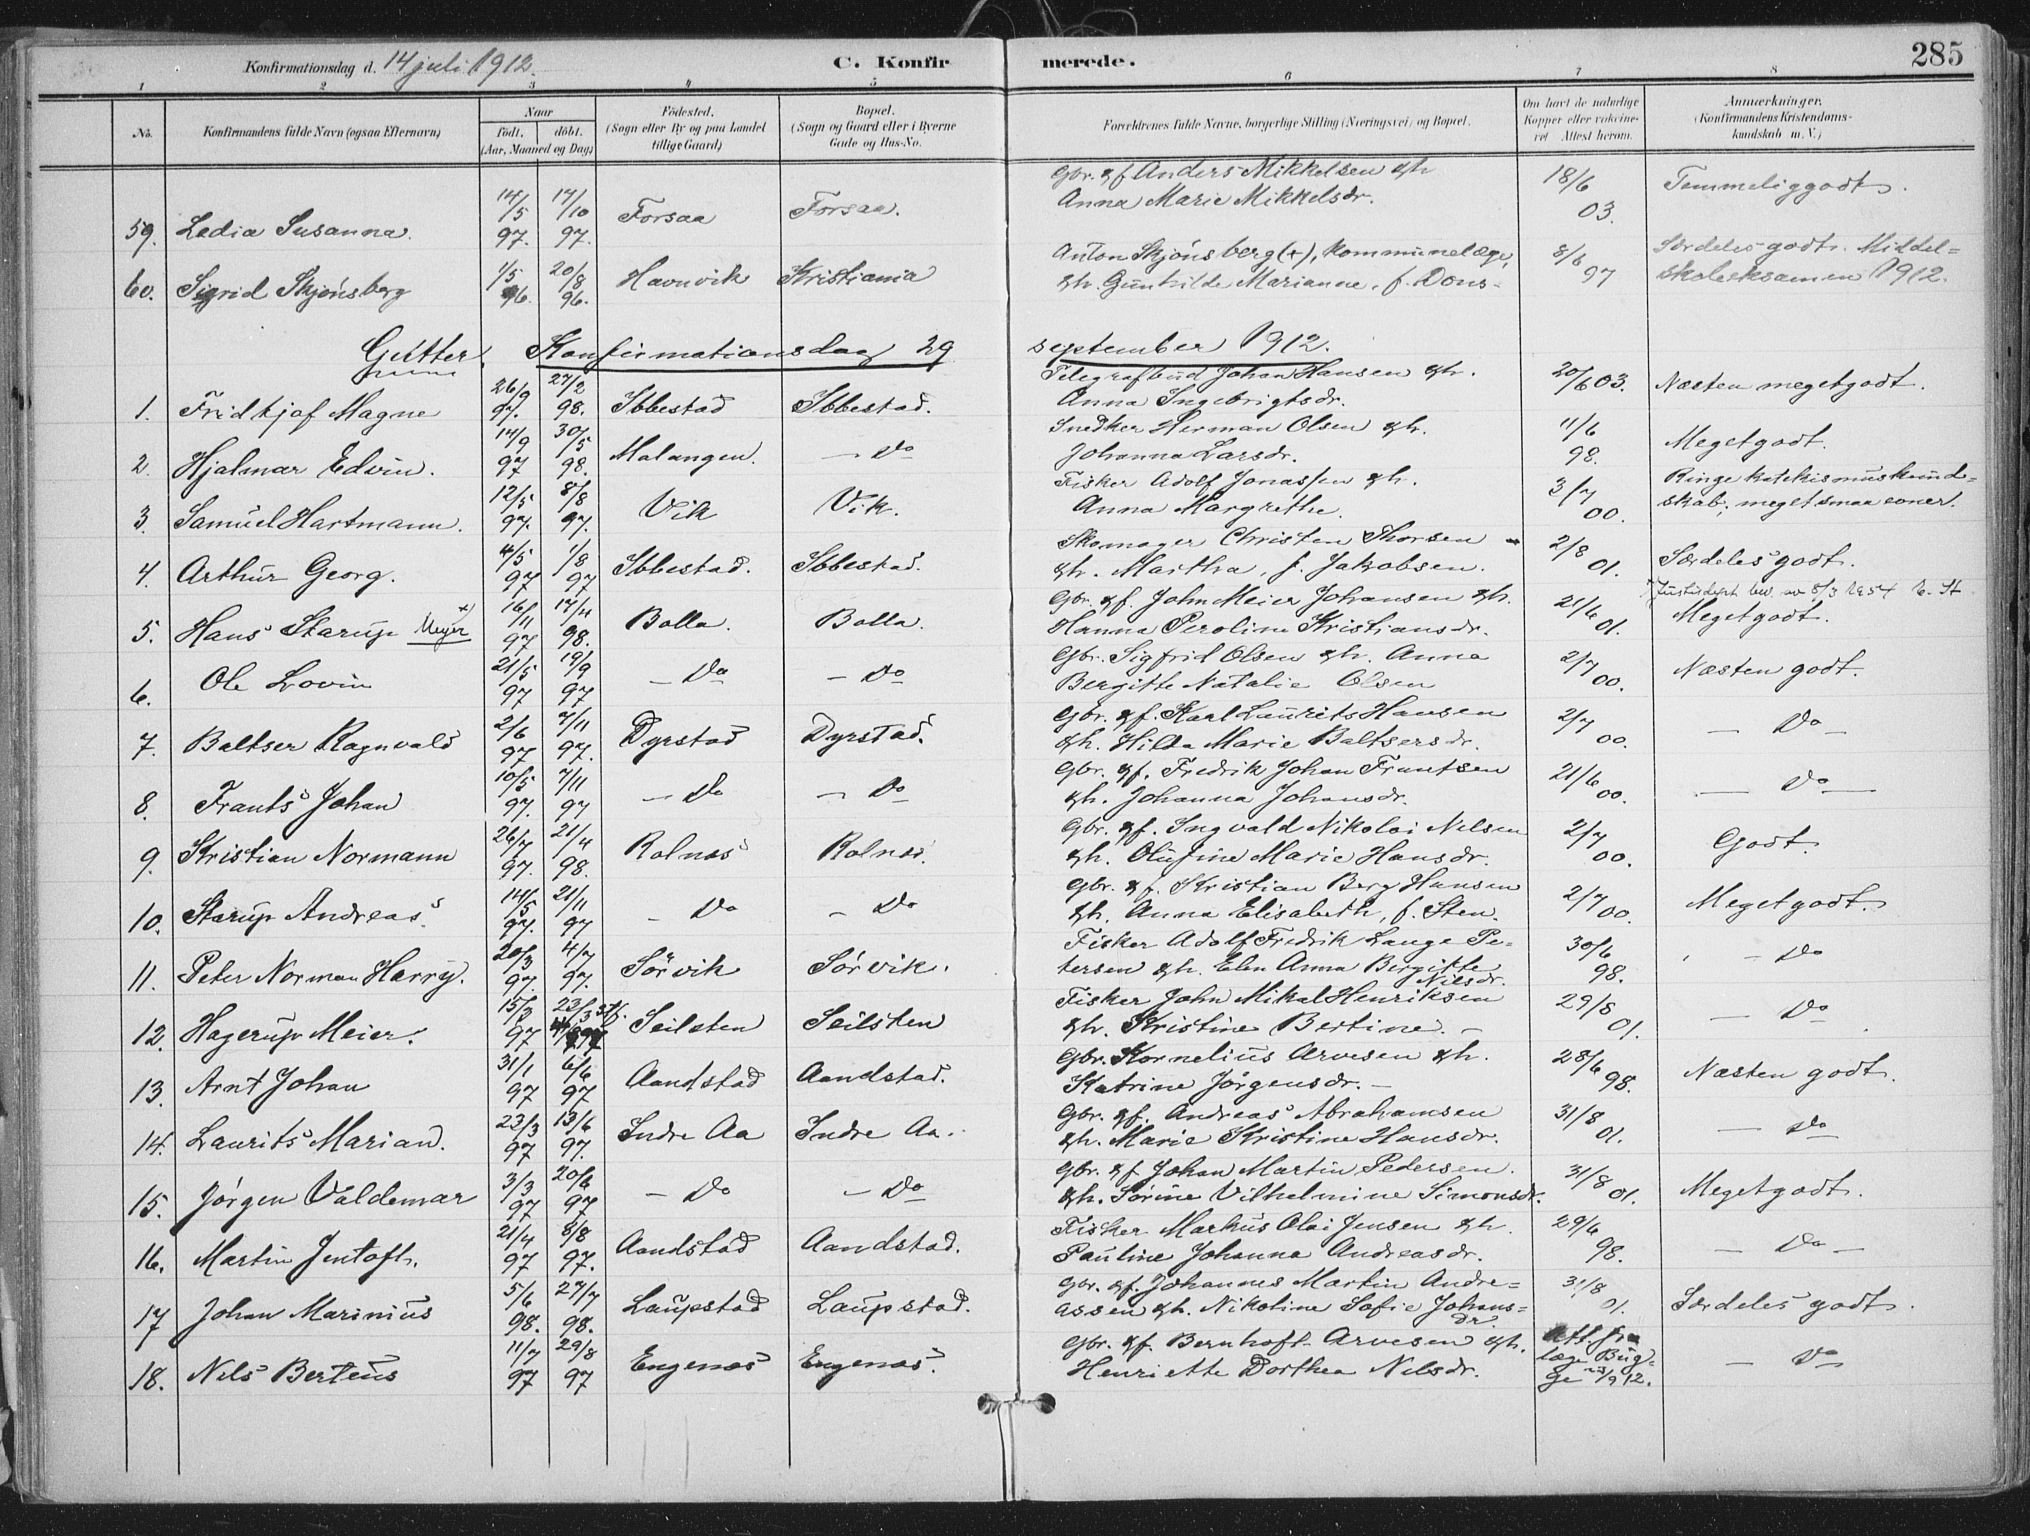 Konfirmationsdag d. 14 juli 1912. C. Konfirmerede. 285
1 2 3 4 5 6 7 8
No. Konfirmandens fulde Navn (ogsaa Efternavn) Naar födt. döbt. (Aar, Maaned og Dag) Födested. (Sogn eller By og paa Landet tillige Gaard) Bopæl. (Sogn og Gaard eller i Byerne Gade og Hus-No. Forældrenes fulde Navne, borgerlige Stilling (Næringsvei) og Bopæl. Om havt de naturlige Kopper eller vakcineret. Attest herom. Anmærkninger. (Konfirmandens Kristendomskundskab m. V.)
59. Ledia Susanna. 14/5 97. 17/10 97. Forsaa Forsaa. Gbr. & f. Anders Mikkelsen & h. Anna Marie Mikkelsdr. 18/6 03. Temmelig godt.
60. Sigrid Skjönsberg 1/5 96. 20/8 96. Havnvik Kristiania Anton Skjönsberg (+), kommunelæge, & h. Gunhilde Marianne, f. Dons- 8/6 97 Særdeles godt. Middel= skoleeksamen 1912.
Gutter. Konfirmationsdag 29 september 1912.
1. Fridtjof Magne 26/9 97. 27/2 98. Ibbestad Ibbestad. Telegrafbud Johan Hansen & h. Anna Ingebrigtsdr. 20/6 03. Næsten meget godt.
2. Hjalmar Edvin. 14/9 97 30/5 98. Malangen. — Do Snedker Herman Olsen & h. Johanna Larsdr. 11/6 98. Meget godt.
3. Samuel Hartmann. 12/5 97. 8/8 97. Vik Vik. Fisker Adolf Jonassen & h. Anna Margrethe. 3/7 00. Ringe katekismuskund= skab; meget smaa evner.
4. Arthur Georg. 4/5 97 1/8 97 Ibbestad. Ibbestad. Skomager Christen Thorsen & h. Martha, f. Jakobsen. 2/8 01. Særdeles godt.
5. Hans Starup Meyer x) 16/11 97 17/4 98. Bolla. Bolla. Gbr. & f. John Meier Johansen & h. Hanna Peroline Kristiansdr. 21/6 01. x) Justisdept. bev. av 8/3 1954 Meget godt.
6. Ole Lovin 21/5 97 19/9 97 — Do — Do Gbr. Sigfrid Olsen & h. Anna Bergitte Natalie Olsen 2/7 00. Næsten godt.
7. Baltser Ragnvald 2/6 97 7/11 97. Dyrstad Dyrstad. Gbr. & f. Karl Laurits Hansen & h. Hilda Marie Baltsersdr. 2/7 00. — Do —
8. Frants Johan 10/5 97. 7/11 97 — Do — Do Gbr. & f. Fredrik Johan Frantsen & h. Johanna Johansdr. 21/6 00. — Do —
9. Kristian Normann 26/7 97. 21/4 98. Rolnæs Rolnæs. Gbr. & f. Ingvald Nikolai Nilsen & h. Olufine Marie Hansdr. 2/7 00. Godt.
10. Starup Andreas. 14/5 97. 21/11 97 — Do — Do Gbr. & f. Kristian Berg Hansen & h. Anna Elisabeth, f. Sten. 2/7 00. Meget godt.
11. Peter Norman Harry. 20/3 97. 4/7 97. Sörvik Sörvik. Fisker Adolf Fredrik Lange Pe- tersen & h. Elen Anna Bergitte Nilsdr. 30/6 98. — Do
12. Hagerup Meier. 15/3 97 23/3 stf. Seilsten Seilsten Fisker John Mikal Henriksen & h. Kristine Bertine. — 29/8 01. — Do
13. Arnt Johan 31/1 97 6/6 97 Aandstad Aandstad. Gbr. Kornelius Arvesen & h. Katrine Jörgensdr. — 28/6 98. Næsten godt.
14. Laurits Marian. 23/3 97 13/6 97. Indre Aa Indre Aa. Gbr. & f. Andreas Abrahamsen & h. Marie Kristine Hansdr. 31/8 01. — Do
15. Jörgen Valdemar 3/3 97 20/6 97 — Do — Do Gbr. & f. Johan Martin Pedersen. & h. Sorine Vilhelmine Simonsdr. 31/8 01. Meget godt.
16. Martin Jentoft. 21/4 97 8/8 97. Aandstad Aandstad. Fisker Markus Olai Jensen & h. Pauline Johanna Andreasdr. 29/6 98. — Do —
17 Johan Marinius 5/6 98. 27/7 98. Laupstad Laupstad. Gbr. & f. Johannes Martin Andre= assen & h. Nikoline Sofie Johans= dr. 31/8 01. Særdeles godt.
18. Nils Berteus 11/7 97 29/8 97 Engenæs Engenæs. Gbr. & f. Bernhoft Arvesen & h. Henriette Dorthea Nilsdr. Att. fra læge Büg- ge /9 12. — Do